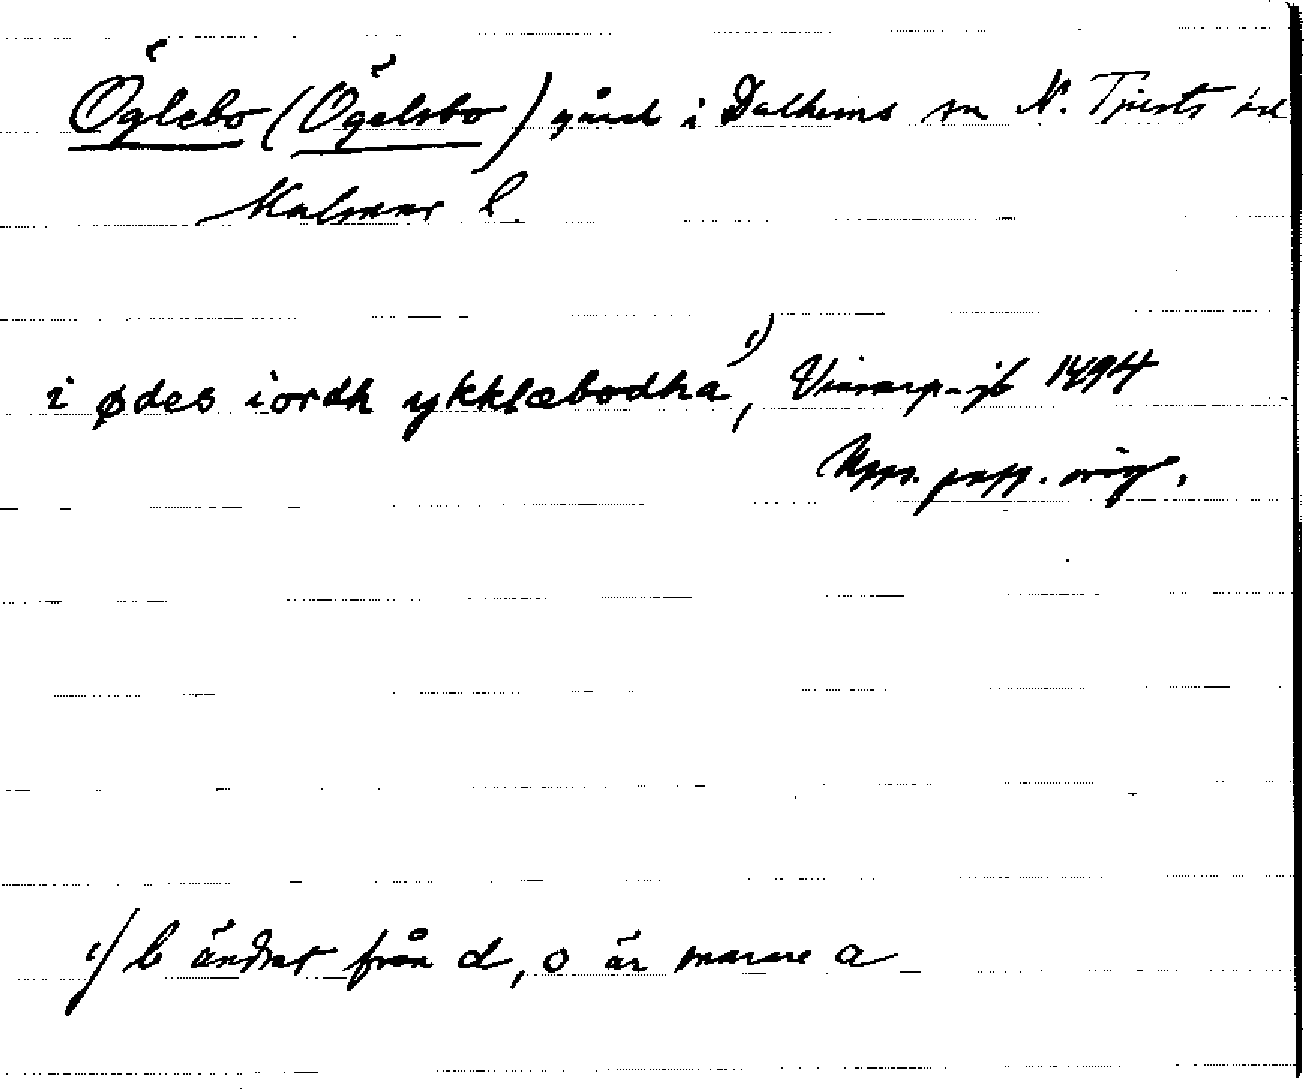 Öglebo (Ögelsbo) gård i Dalhems sn N. Tjusts hd
Kalmar l.
i ødes iordh ykklæbodha¹⁾, Vinnarp-jb 1494
Upps. papp. orig.
¹⁾ b ändrat från d, o är snarare a